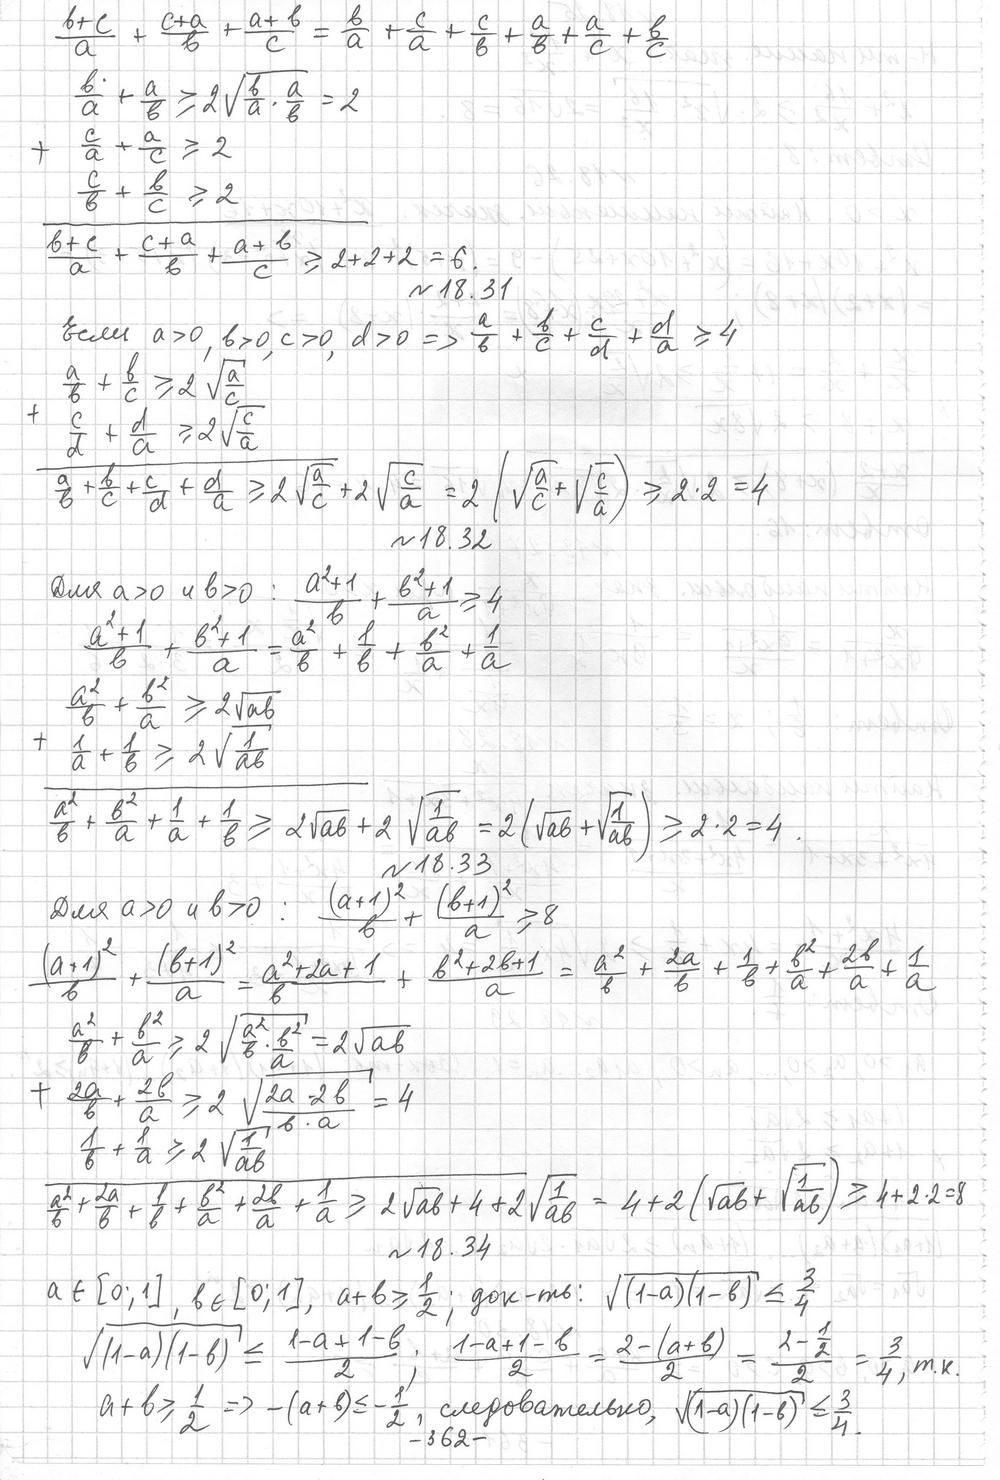 (b+c)/a + (c+a)/b + (a+b)/c = b/a + c/a + c/b + a/b + a/c + b/c
b/a + a/b ≥ 2√(b/a · a/b) = 2
+ c/a + a/c ≥ 2
c/b + b/c ≥ 2
(b+c)/a + (c+a)/b + (a+b)/c ≥ 2+2+2 = 6.
~18.31
Если a>0, b>0, c>0, d>0 => a/b + b/c + c/d + d/a ≥ 4
a/b + b/c ≥ 2√(a/c)
+ c/d + d/a ≥ 2√(c/a)
a/b + b/c + c/d + d/a ≥ 2√(a/c) + 2√(c/a) = 2(√(a/c) + √(c/a)) ≥ 2·2 = 4
~18.32
Для a>0 и b>0 : (a²+1)/b + (b²+1)/a ≥ 4
(a²+1)/b + (b²+1)/a = a²/b + 1/b + b²/a + 1/a
a²/b + b²/a ≥ 2√(ab)
+ 1/a + 1/b ≥ 2√(1/(ab))
a²/b + b²/a + 1/a + 1/b ≥ 2√(ab) + 2√(1/(ab)) = 2(√(ab) + √(1/(ab))) ≥ 2·2 = 4.
~18.33
Для a>0 и b>0 : (a+1)²/b + (b+1)²/a ≥ 8
(a+1)²/b + (b+1)²/a = (a²+2a+1)/b + (b²+2b+1)/a = a²/b + 2a/b + 1/b + b²/a + 2b/a + 1/a
a²/b + b²/a ≥ 2√(a²/b · b²/a) = 2√(ab)
+ 2a/b + 2b/a ≥ 2√((2a·2b)/(b·a)) = 4
1/b + 1/a ≥ 2√(1/(ab))
a²/b + 2a/b + 1/b + b²/a + 2b/a + 1/a ≥ 2√(ab) + 4 + 2√(1/(ab)) = 4 + 2(√(ab) + √(1/(ab))) ≥ 4+2·2=8
~18.34
a ∈ [0;1], b ∈ [0;1], a+b ≥ 1/2; док-ть: √((1-a)(1-b)) ≤ 3/4
√((1-a)(1-b)) ≤ (1-a+1-b)/2; (1-a+1-b)/2 = (2-(a+b))/2 = (2-1/2)/2 = 3/4, т.к.
a+b ≥ 1/2 => -(a+b) ≤ -1/2, следовательно, √((1-a)(1-b)) ≤ 3/4.
-362-